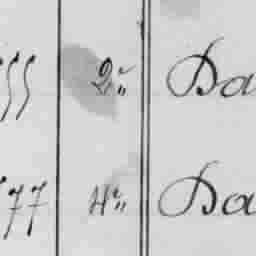 55 2.. Da
77 4.. Da